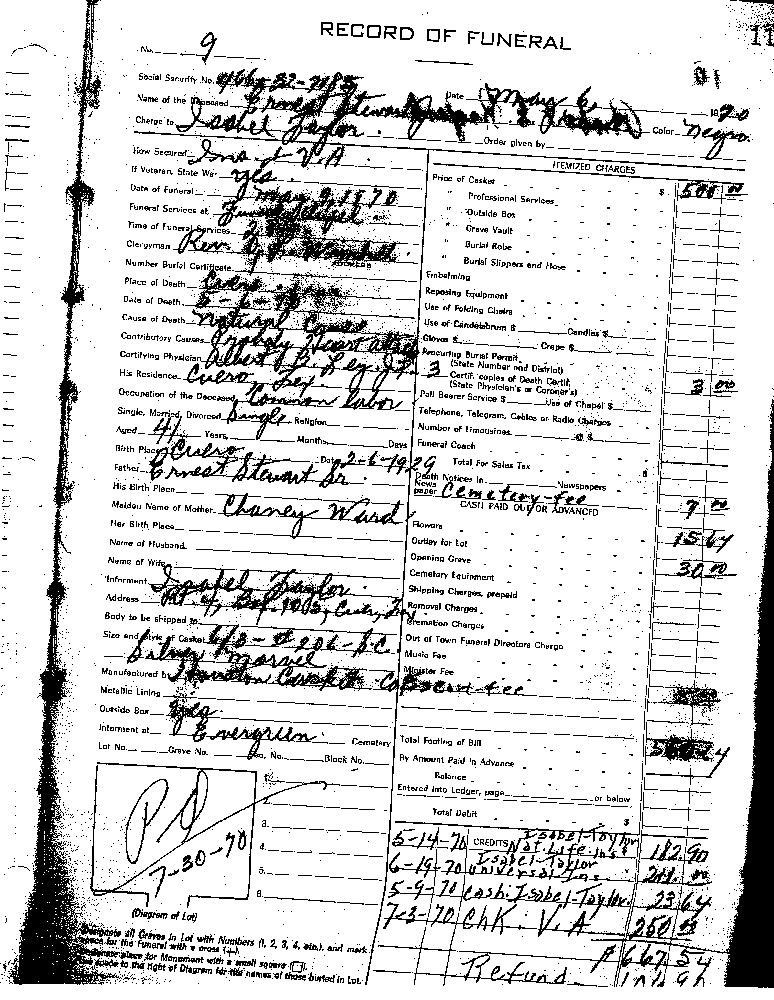 RECORD OF FUNERAL
11
No. 9
01
Social Security No. 466-32-7185
Date May 6, 1970
Name of the Deceased Ernest Stewart
Color Negro.
Charge to Isabel Taylor.
Order given by
How Secured Ins. & V.A
If Veteran, State War yes
Date of Funeral May 9, 1970
Funeral Services at Funeral Chapel
Time of Funeral Services
Clergyman Rev.
Number Burial Certificate
Place of Death Cuero
Date of Death 5-6-70
Cause of Death Natural Cause
Contributory Causes Probly Heart attack
Certifying Physician Albert Ley. J.P. 3
His Residence Cuero Tex.
Occupation of the Deceased Common labor
Single, Married, Divorced Single Religion
Aged 41 Years, Months, Days
Birth Place Cuero Date 2-6-1929
Father Ernest Stewart Sr
His Birth Place
Maiden Name of Mother Chaney Ward
Her Birth Place
Name of Husband
Name of Wife
Informant Isabel Taylor.
Address Rt. 4, Box 103, Cuero, Tex
Body to be shipped to
Size and Style of Casket 6/3 - # 206 - B.C.
Silver Marvel
Manufactured by Houston Casket Co
Metallic Lining
Outside Box yes
Interment at Evergreen. Cemetery
Lot No. Grave No. Sec. No. Block No.
PD
7-30-70
1.
2.
3.
4.
5.
6.
(Diagram of Lot)
Designate all Graves in Lot with Numbers (1, 2, 3, 4, etc.), and mark
space for the Funeral with a cross (+).
Designate place for Monument with a small square (□).
Use space to the right of Diagram for the names of those buried in Lot.
ITEMIZED CHARGES
Price of Casket $ 500 00
" Professional Services
" Outside Box
" Grave Vault
" Burial Robe
" Burial Slippers and Hose
Embalming
Reposing Equipment
Use of Folding Chairs
Use of Candelabrum $ Candles $
Gloves $ Crape $
Procuring Burial Permit
(State Number and District)
Certif. copies of Death Certif. 3 00
(State Physician's or Coroner's)
Pall Bearer Service $ Use of Chapel $
Telephone, Telegram, Cables or Radio Charges
Number of Limousines @ $
Funeral Coach
Total For Sales Tax $
Death Notices in Newspapers
News paper Cemetery-fee 7 00
CASH PAID OUT OR ADVANCED
Flowers
Outlay for Lot 15 64
Opening Grave 30 00
Cemetery Equipment
Shipping Charges, prepaid
Removal Charges
Cremation Charges
Out of Town Funeral Directors Charge
Music Fee
Minister Fee
fee
Total Footing of Bill
By Amount Paid in Advance
Balance
Entered into Ledger, page or below
Total Debit $
5-14-70 CREDITS Isabel-Taylor
Nat. Life. Ins 182.90
6-19-70 Isabel-Taylor
Universal Ins. 211.00
5-9-70 Cash. Isabel-Taylor. 23 64
7-3-70 Chk. V.A 250 00
$ 667.54
Refund